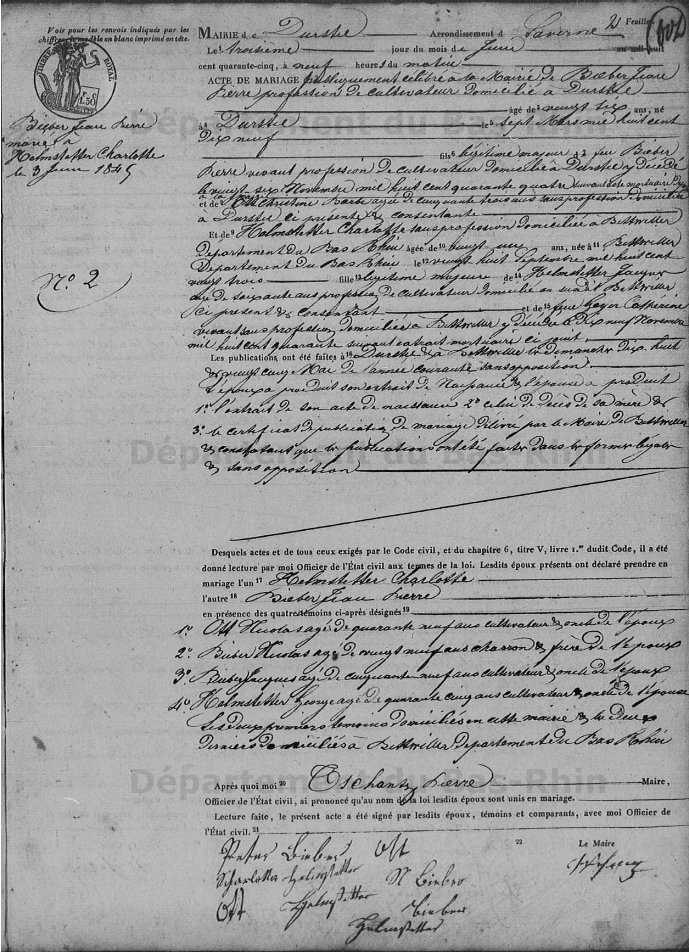 Voir pour les renvois indiqués par les
chiffres, le modèle en blanc imprimé en tête.
2 Feuillet
802
TIMBRE ROYAL
1.50
MAIRIE d e Durstel Arrondissement d Saverne
Le troisième jour du mois de Juin an mil huit
cent quarante-cinq, à neuf heures du matin
ACTE DE MARIAGE publiquement célébré à la Mairie de Bieber Jean
Pierre profession de cultivateur domicilié à Durstel
âgé de vingt six ans, né
à Durstel le sept Mars mil huit cent
dix neuf
fils légitime majeur d feu Bieber
Pierre vivant profession de cultivateur domicilié à Durstel y décédé
le vingt six Novembre mil huit cent quarante quatre suivant acte mortuaire
et de Ott Christine âgée de cinquante trois ans sans profession domiciliée
à Durstel ci présente & consentante
Et de Helmstetter Charlotte sans profession domiciliée à Bettwiller
Département du Bas Rhin âgée de vingt un ans, née à Bettwiller
Département du Bas Rhin le vingt huit Septembre mil huit cent
vingt trois fille légitime majeure de Helmstetter Jacques
âgé de soixante ans profession de cultivateur domicilié au susdit Bettwiller
ci présent & consentant et de feue Catherine
vivant sans profession domiciliée à Bettwiller y décédée le dix neuf Novembre
mil huit cent quarante suivant extrait mortuaire ci joint
Les publications ont été faites à Durstel & à Bettwiller les dimanches dix huit
& vingt cinq Mai de l'année courante sans opposition
L'époux a produit son extrait de Naissance & l'épouse a produit
1° l'extrait de son acte de naissance 2° celui de décès de sa mère &
3° le certificat de publication de mariage délivré par le Maire de Bettwiller
& constatant que les publications ont été faites dans les formes légales
& sans opposition
Desquels actes et de tous ceux exigés par le Code civil, et du chapitre 6, titre V, livre 1.er dudit Code, il a été
donné lecture par moi Officier de l'État civil aux termes de la loi. Lesdits époux présents ont déclaré prendre en
mariage l'un 17 Helmstetter Charlotte
l'autre 18 Bieber Jean Pierre
en présence des quatre témoins ci-après désignés 19
1° Ott Nicolas âgé de quarante neuf ans cultivateur & oncle de l'époux
2° Bieber Nicolas âgé de vingt neuf ans charron & frère de l'époux
3° Bieber Jacques âgé de cinquante neuf ans cultivateur & oncle de l'époux
4° Helmstetter George âgé de quarante cinq ans cultivateur & oncle de l'épouse
Les deux premiers témoins domiciliés en cette mairie & les deux
derniers domiciliés à Bettwiller Département du Bas Rhin
Après quoi moi 20 Tschantz Pierre Maire,
Officier de l'État civil, ai prononcé qu'au nom de la loi lesdits époux sont unis en mariage.
Lecture faite, le présent acte a été signé par lesdits époux, témoins et comparants, avec moi Officier de
l'État civil. 21
22
Le Maire
Peter Bieber Ott
Scharlotta Helmstetter N Bieber
Ott Helmstetter Bieber
Helmstetter
Bieber Jean Pierre
marié à
Helmstetter Charlotte
le 3 Juin 1845
N° 2
Département du Bas-Rhin
Département du Bas-Rhin
Département du Bas-Rhin